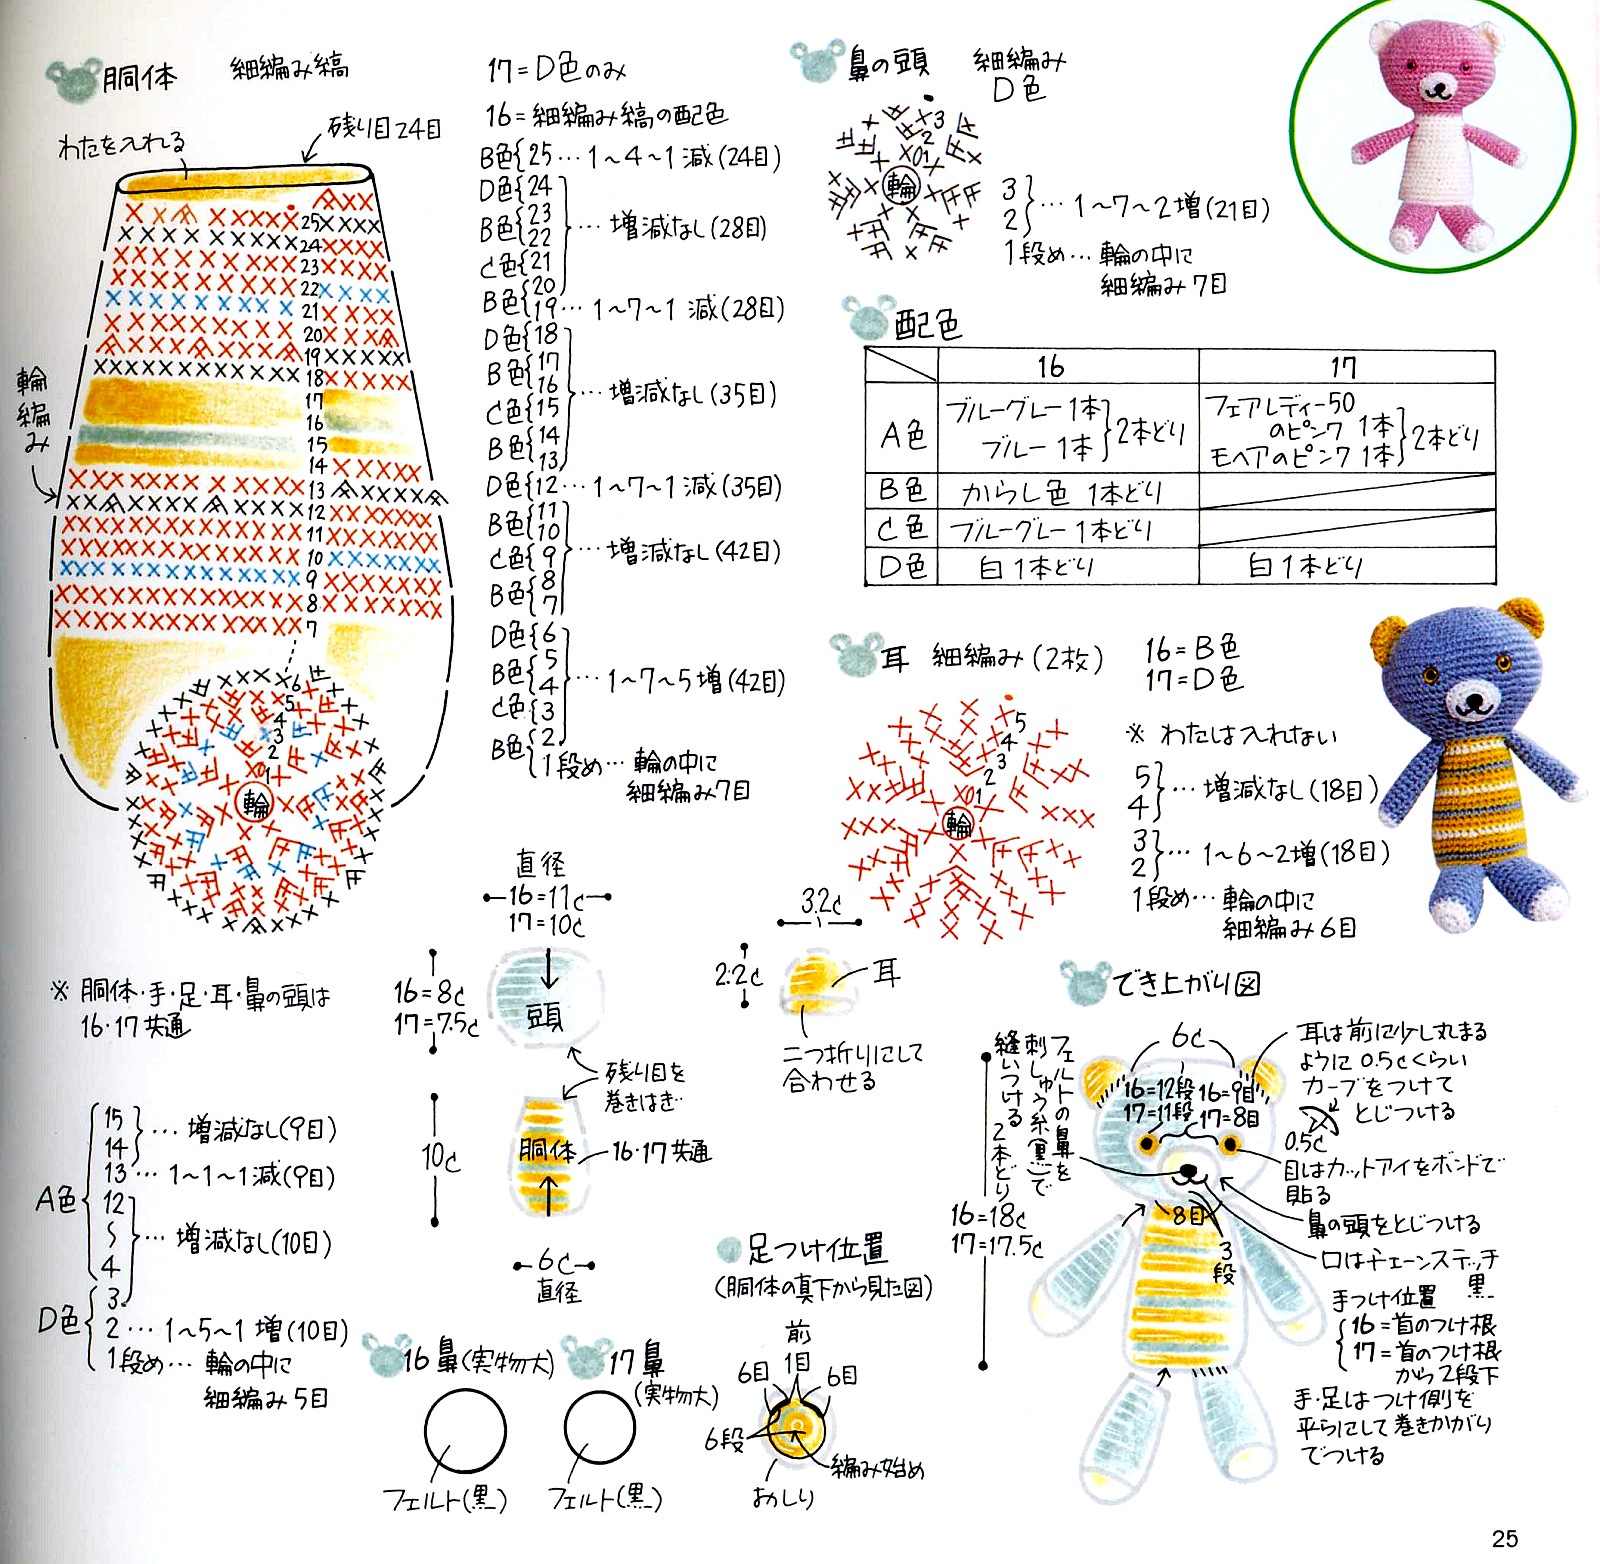 胴体 細編み縞
わたを入れる
残り目24目
輪編み
25
24
23
22
21
20
19
18
17
16
15
14
13
12
11
10
9
8
7
6
5
4
3
2
1
輪
17=D色のみ
16=細編み縞の配色
B色{25…1〜4〜1減(24目)
D色{24
B色{23
22
C色{21
…増減なし(28目)
B色{20
19…1〜7〜1減(28目)
D色{18
B色{17
16
C色{15
B色{14
13
…増減なし(35目)
D色{12…1〜7〜1減(35目)
B色{11
10
C色{9
B色{8
7
…増減なし(42目)
D色{6
B色{5
4
C色{3
B色{2
…1〜7〜5増(42目)
1段め…輪の中に
細編み7目
鼻の頭 細編み
D色
3
2
1
輪
3
2
}…1〜7〜2増(21目)
1段め…輪の中に
細編み7目
配色
16 17
A色 ブルーグレー1本
ブルー1本}2本どり
フェアレディー50
のピンク 1本
モヘアのピンク 1本}2本どり
B色 からし色 1本どり
C色 ブルーグレー1本どり
D色 白1本どり 白1本どり
耳 細編み(2枚)
16=B色
17=D色
5
4
3
2
1
輪
※ わたは入れない
5
4
}…増減なし(18目)
3
2
}…1〜6〜2増(18目)
1段め…輪の中に
細編み6目
※ 胴体・手・足・耳・鼻の頭は
16・17共通
A色
15
14
}…増減なし(9目)
13…1〜1〜1減(9目)
12
〜
4
…増減なし(10目)
D色
3
2…1〜5〜1増(10目)
1段め…輪の中に
細編み5目
直径
16=11c
17=10c
16=8c
17=7.5c
頭
残り目を
巻きはぎ
10c
胴体
16・17共通
6c
直径
3.2c
2.2c
耳
二つ折りにして
合わせる
16鼻(実物大)
フェルト(黒)
17鼻
(実物大)
フェルト(黒)
足つけ位置
(胴体の真下から見た図)
前
1目
6目
6目
6段
編み始め
おしり
でき上がり図
6c
16=12段
17=11段
16=9目
17=8目
フェルトの鼻を
刺しゅう糸(黒)で
縫いつける 2本どり
16=18c
17=17.5c
8目
3段
耳は前に少し丸まる
ように0.5cくらい
カーブをつけて
とじつける
0.5c
目はカットアイをボンドで
貼る
鼻の頭をとじつける
口はチェーンステッチ
黒
手つけ位置
16=首のつけ根
17=首のつけ根
から2段下
手・足はつけ側を
平らにして巻きかがり
でつける
25